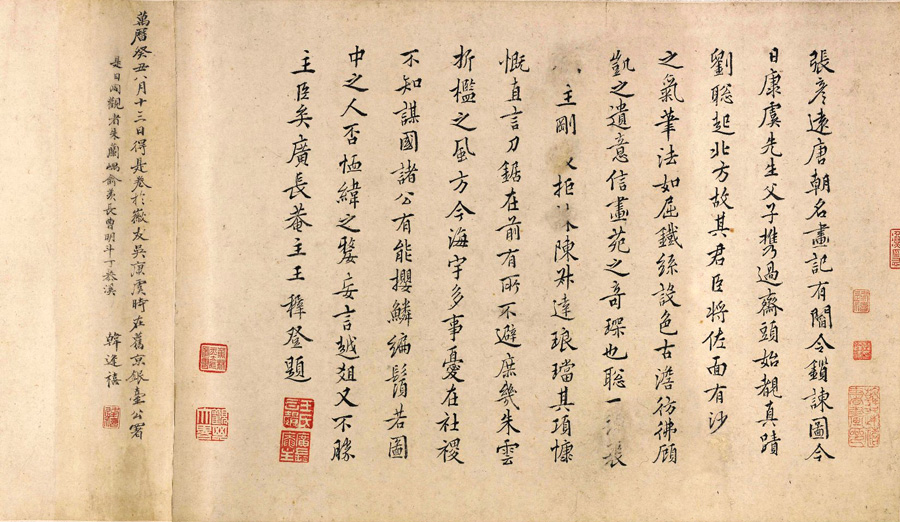 張彥遠唐朝名畫記有閻令鎖諫圖今
日康虞先生父子携過齋頭始覩真蹟
劉聡起北方故其君臣將佐面有沙
之氣筆法如屈鐵絲設色古澹彷彿顧
凱之遺意信畫苑之奇琛也聡一
主剛 拒 陳 達琅璫其項慷
慨直言刀鋸在前有所不避庶幾朱雲
折檻之風方今海宇多事憂在社稷
不知謀國諸公有能攖鱗編鬚若圖
中之人否恤緯之嫠妄言越爼又不勝
主臣矣廣長菴主王穉登題
王氏百穀
廣長菴主
萬曆癸丑八月十三日得是卷於徽友吳康虞時在舊京銀臺公署
是日同觀者朱蘭嵎俞羨長曹明斗丁菘溪
韓逢禧